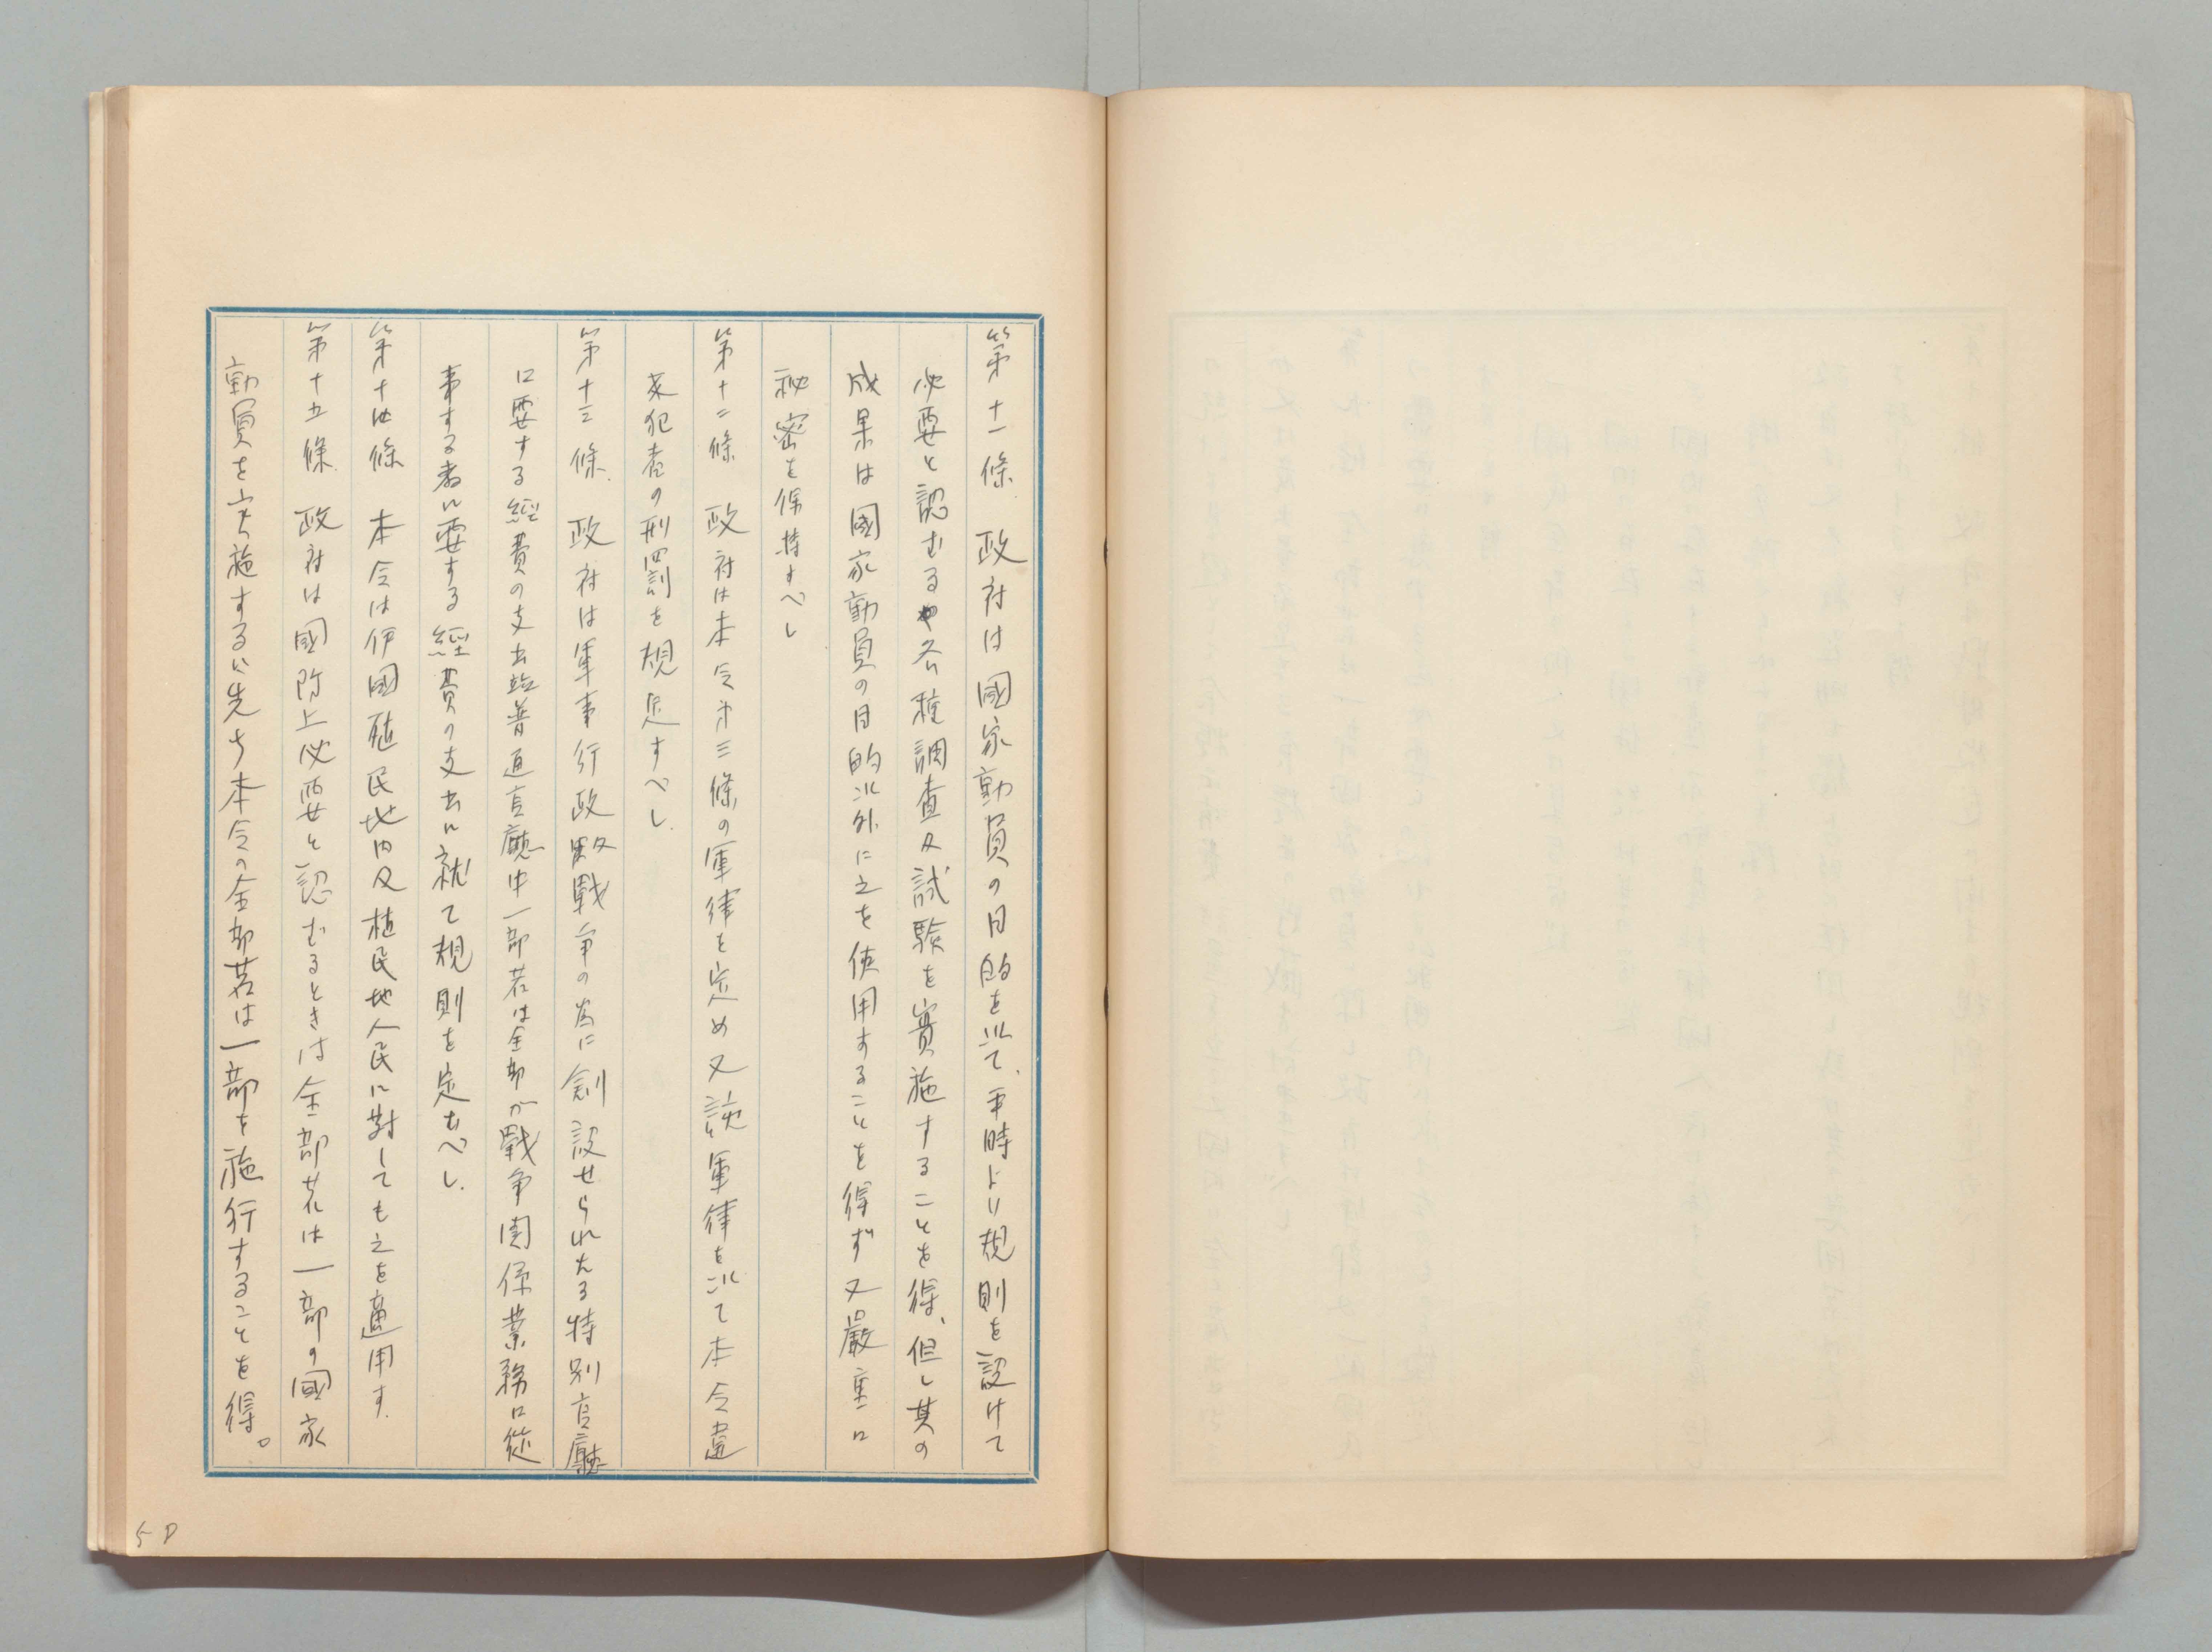 第十一條 政府は國家動員の目的を以て、平時より規則を設けて
必要と認むる各種調査及試驗を實施することを得、但し其の
成果は國家動員の目的以外に之を使用することを得ず又嚴重に
秘密を保持すべし
第十二條 政府は本令第三條の軍律を定め又該軍律を以て本令違
反犯者の刑罰を規定すべし.
第十三條. 政府は軍事行政及戰爭の為に創設せられたる特別官廳
に要する經費の支出並普通官廳中一部若は全部が戰爭関係業務に從
事する者に要する經費の支出に就て規則を定むべし.
第十四條 本令は伊國殖民地内及植民地人民に對しても之を適用す.
第十五條. 政府は國防上必要と認むるときは全部若は一部の國家
動員を実施するに先ち本令の全部若は一部を施行することを得。
5P